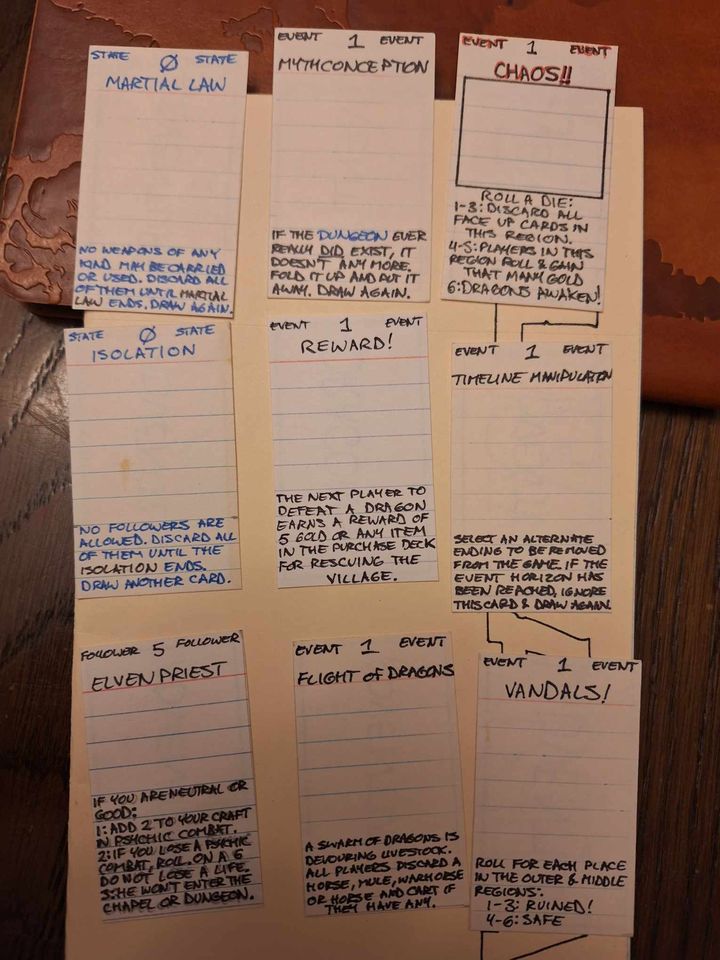 STATE 0 STATE
MARTIAL LAW
NO WEAPONS OF ANY
KIND MAY BE CARRIED
OR USED. DISCARD ALL
OF THEM UNTIL MARTIAL
LAW ENDS. DRAW AGAIN.
EVENT 1 EVENT
MYTHCONCEPTION
IF THE DUNGEON EVER
REALLY DID EXIST, IT
DOESN'T ANY MORE.
FOLD IT UP AND PUT IT
AWAY. DRAW AGAIN.
EVENT 1 EVENT
CHAOS!!
ROLL A DIE:
1-3: DISCARD ALL
FACE UP CARDS IN
THIS REGION.
4-5: PLAYERS IN THIS
REGION ROLL & GAIN
THAT MANY GOLD
6: DRAGONS AWAKEN!
STATE 0 STATE
ISOLATION
NO FOLLOWERS ARE
ALLOWED. DISCARD ALL
OF THEM UNTIL THE
ISOLATION ENDS.
DRAW ANOTHER CARD.
EVENT 1 EVENT
REWARD!
THE NEXT PLAYER TO
DEFEAT A DRAGON
EARNS A REWARD OF
5 GOLD OR ANY ITEM
IN THE PURCHASE DECK
FOR RESCUING THE
VILLAGE.
EVENT 1 EVENT
TIMELINE MANIPULATION
SELECT AN ALTERNATE
ENDING TO BE REMOVED
FROM THE GAME. IF THE
EVENT HORIZON HAS
BEEN REACHED, IGNORE
THIS CARD & DRAW AGAIN.
FOLLOWER 5 FOLLOWER
ELVEN PRIEST
IF YOU ARE NEUTRAL OR
GOOD:
1: ADD 2 TO YOUR CRAFT
IN PSYCHIC COMBAT.
2: IF YOU LOSE A PSYCHIC
COMBAT, ROLL. ON A 6
DO NOT LOSE A LIFE.
3: HE WON'T ENTER THE
CHAPEL OR DUNGEON.
EVENT 1 EVENT
FLIGHT OF DRAGONS
A SWARM OF DRAGONS IS
DEVOURING LIVESTOCK.
ALL PLAYERS DISCARD A
HORSE, MULE, WARHORSE
OR HORSE AND CART IF
THEY HAVE ANY.
EVENT 1 EVENT
VANDALS!
ROLL FOR EACH PLACE
IN THE OUTER & MIDDLE
REGIONS:
1-3: RUINED!
4-6: SAFE